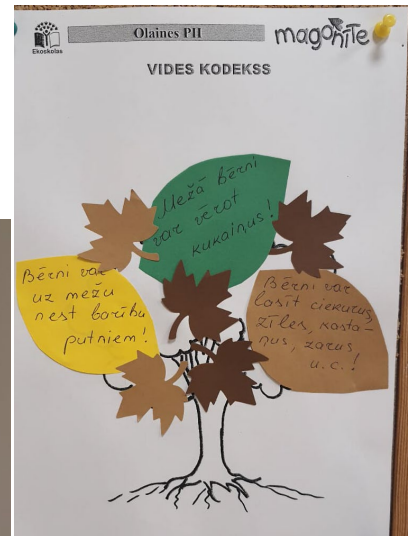 Ekoskolas
Olaines PII
magonīte
VIDES KODEKSS
Mežā bērni
var vērot
kukaiņus!
Bērni var
uz mežu
nest barību
putniem!
Bērni var
lasīt čiekurus,
zīles, kasta-
ņus, zarus
u.c.!